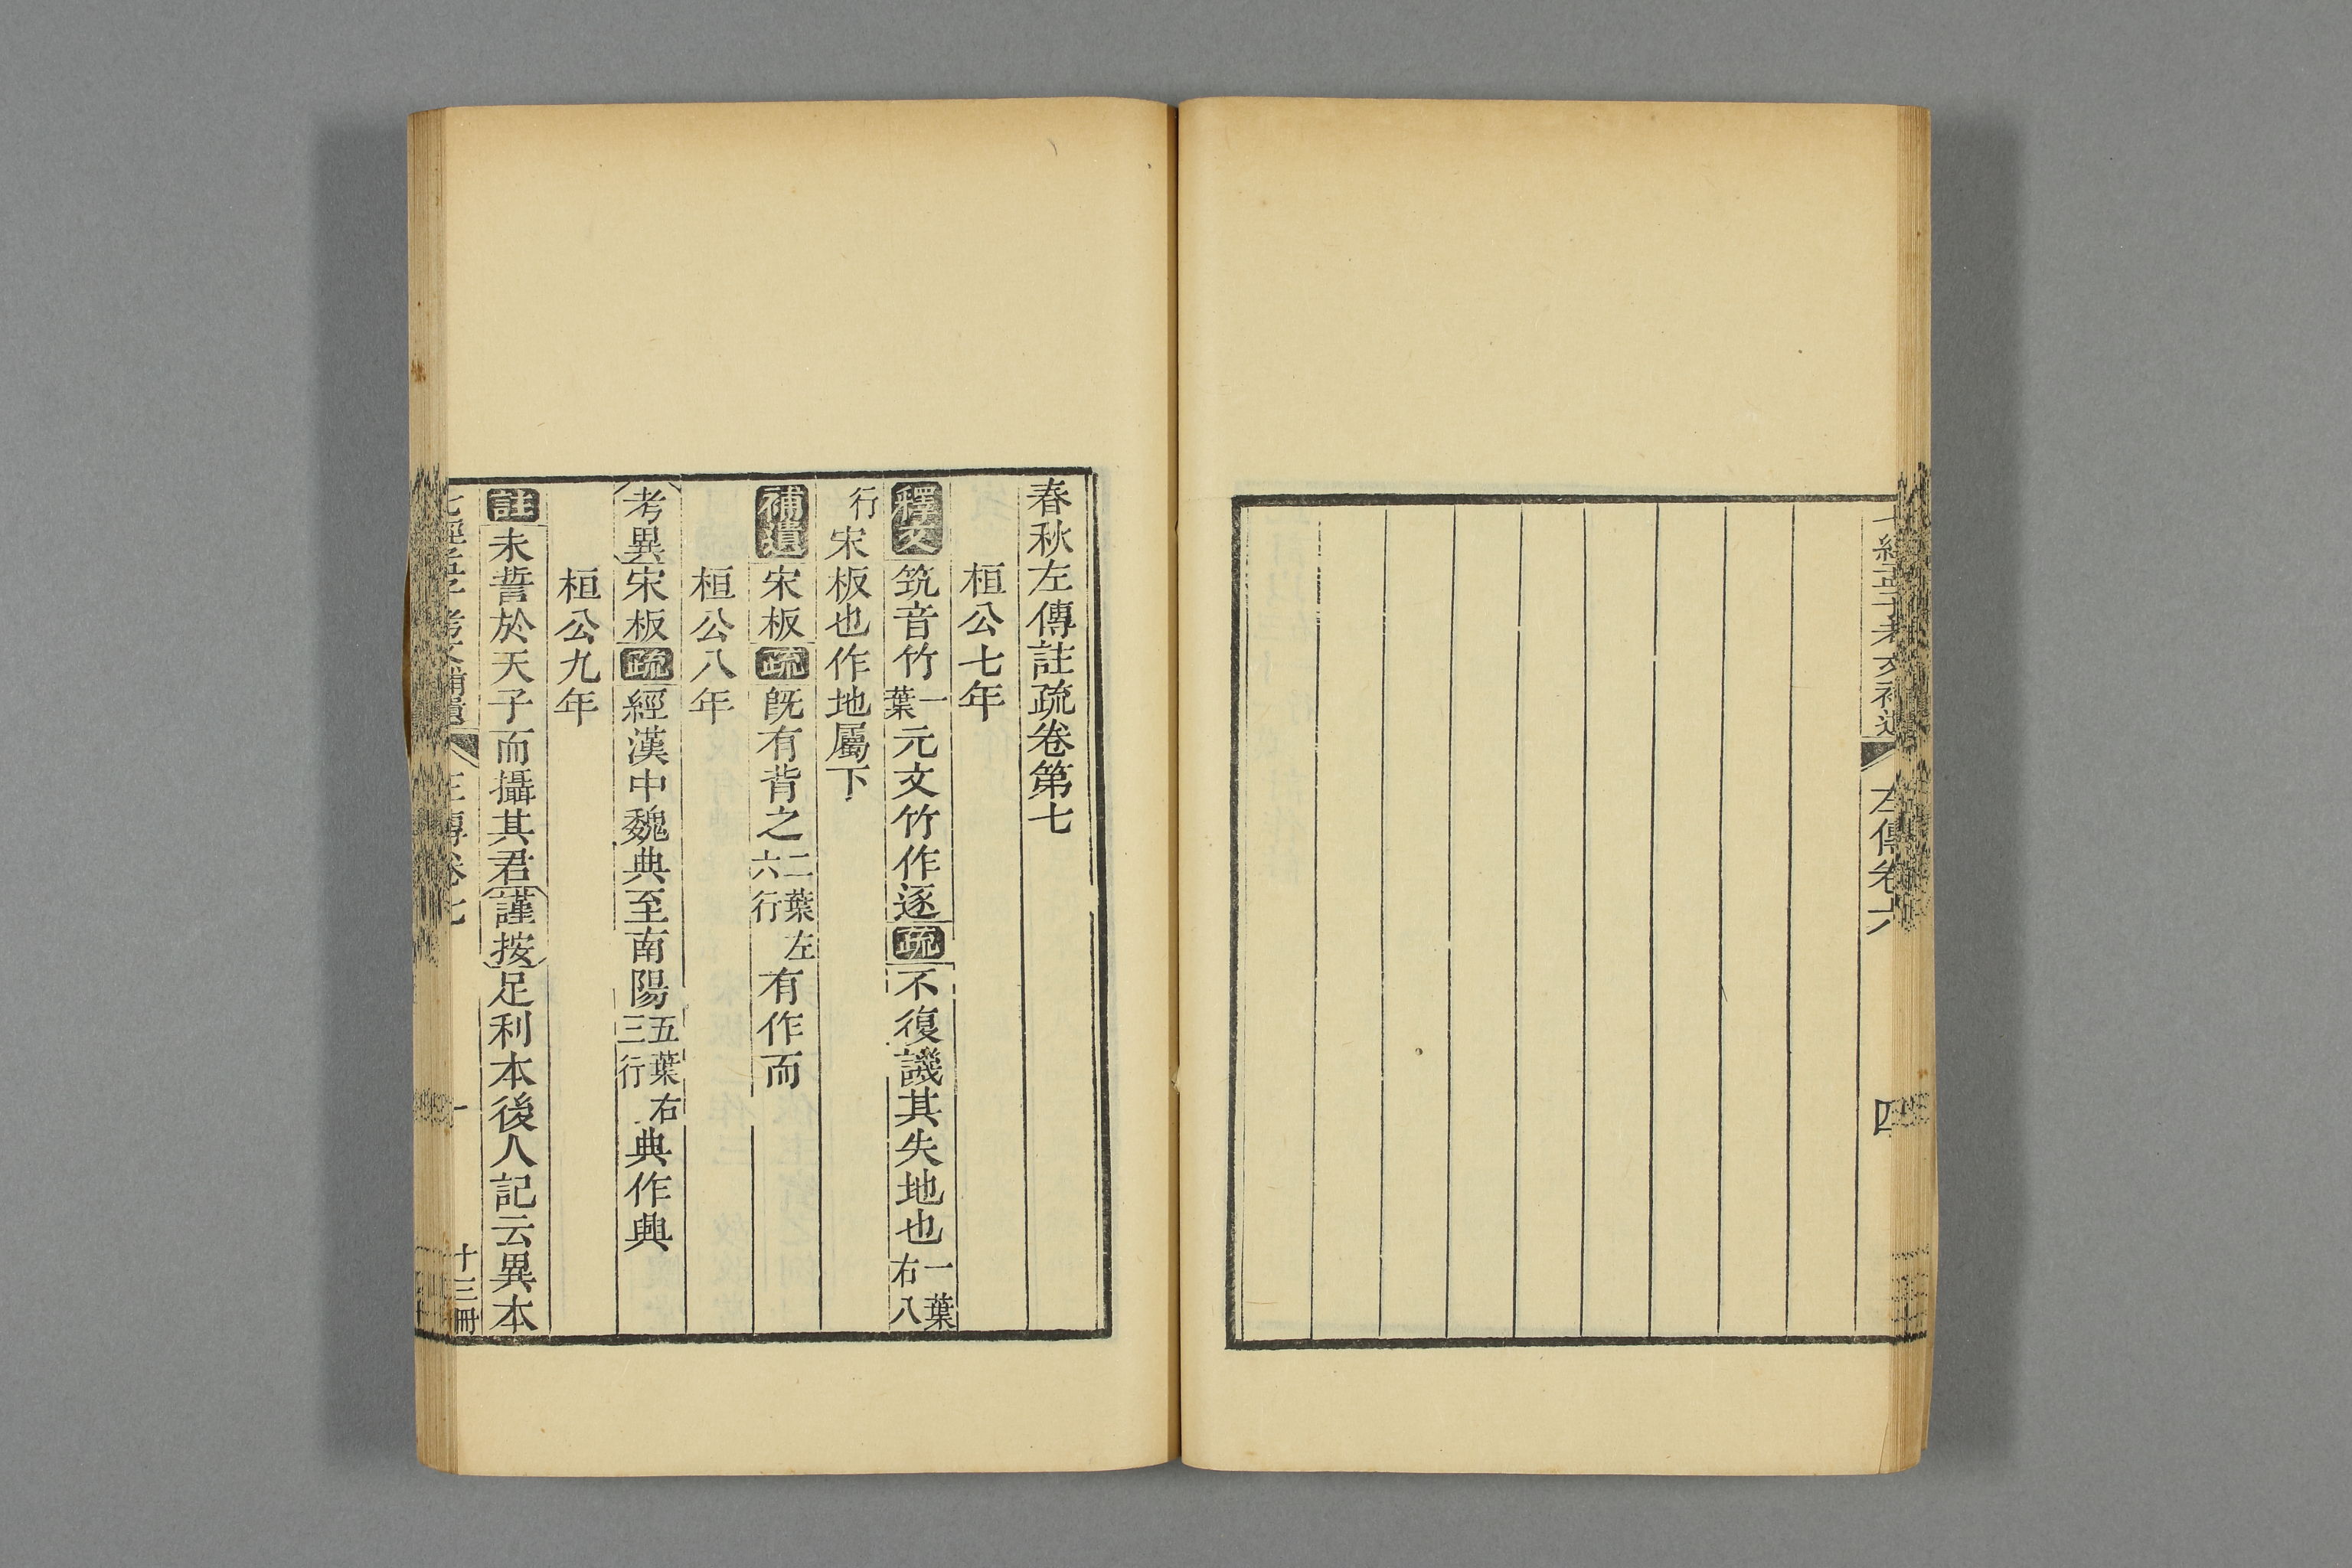 七經孟子考文補遺 左傳卷六 四
春秋左傳註疏卷第七
桓公七年
釋文筑音竹一葉元文竹作逐疏不復譏其失地也一葉右八
行宋板也作地屬下
補遺宋板疏旣有背之二葉左六行有作而
桓公八年
考異宋板疏經漢中魏典至南陽五葉右三行典作興
桓公九年
註未誓於天子而攝其君謹按足利本後人記云異本
七經孟子考文補遺 左傳卷七 一 十三冊